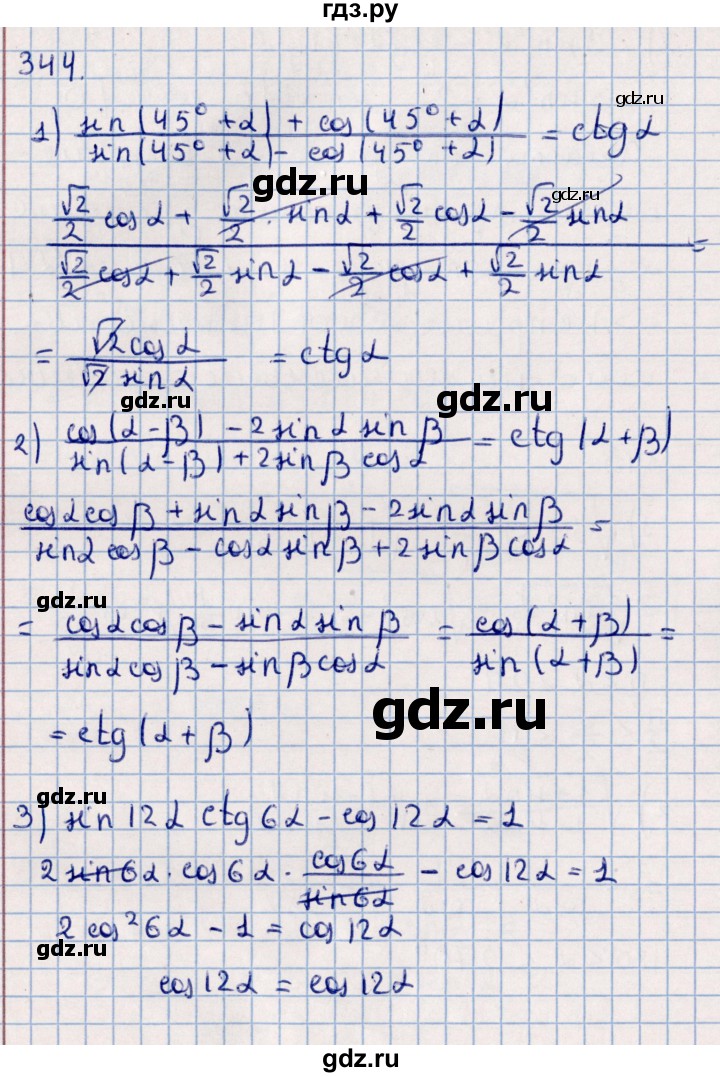 гдз.ру
344.
gdz.ru
1) (sin(45° + α) + cos(45° + α)) / (sin(45° + α) - cos(45° + α)) = ctg α
gdz.ru gdz.ru
(√2/2 cos α + √2/2 · sin α + √2/2 cos α - √2/2 sin α) / (√2/2 cos α + √2/2 sin α - √2/2 cos α + √2/2 sin α) =
= √2 cos α / √2 sin α = ctg α
gdz.ru gdz.ru
2) (cos(α - β) - 2 sin α sin β) / (sin(α - β) + 2 sin β cos α) = ctg(α + β)
(cos α cos β + sin α sin β - 2 sin α sin β) / (sin α cos β - cos α sin β + 2 sin β cos α) =
gdz.ru gdz.ru
= (cos α cos β - sin α sin β) / (sin α cos β - sin β cos α) = cos(α + β) / sin(α + β) =
gdz.ru
= ctg(α + β)
gdz.ru
3) sin 12α ctg 6α - cos 12α = 1
2 sin 6α · cos 6α · cos 6α / sin 6α - cos 12α = 1
2 cos² 6α - 1 = cos 12α
gdz.ru gdz.ru
cos 12α = cos 12α
gdz.ru